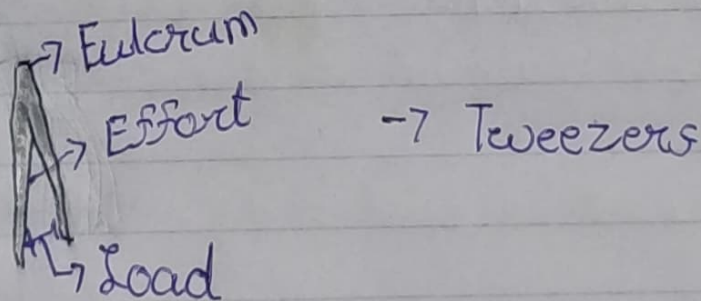 Fulcrum
Effort
→ Tweezers
Load